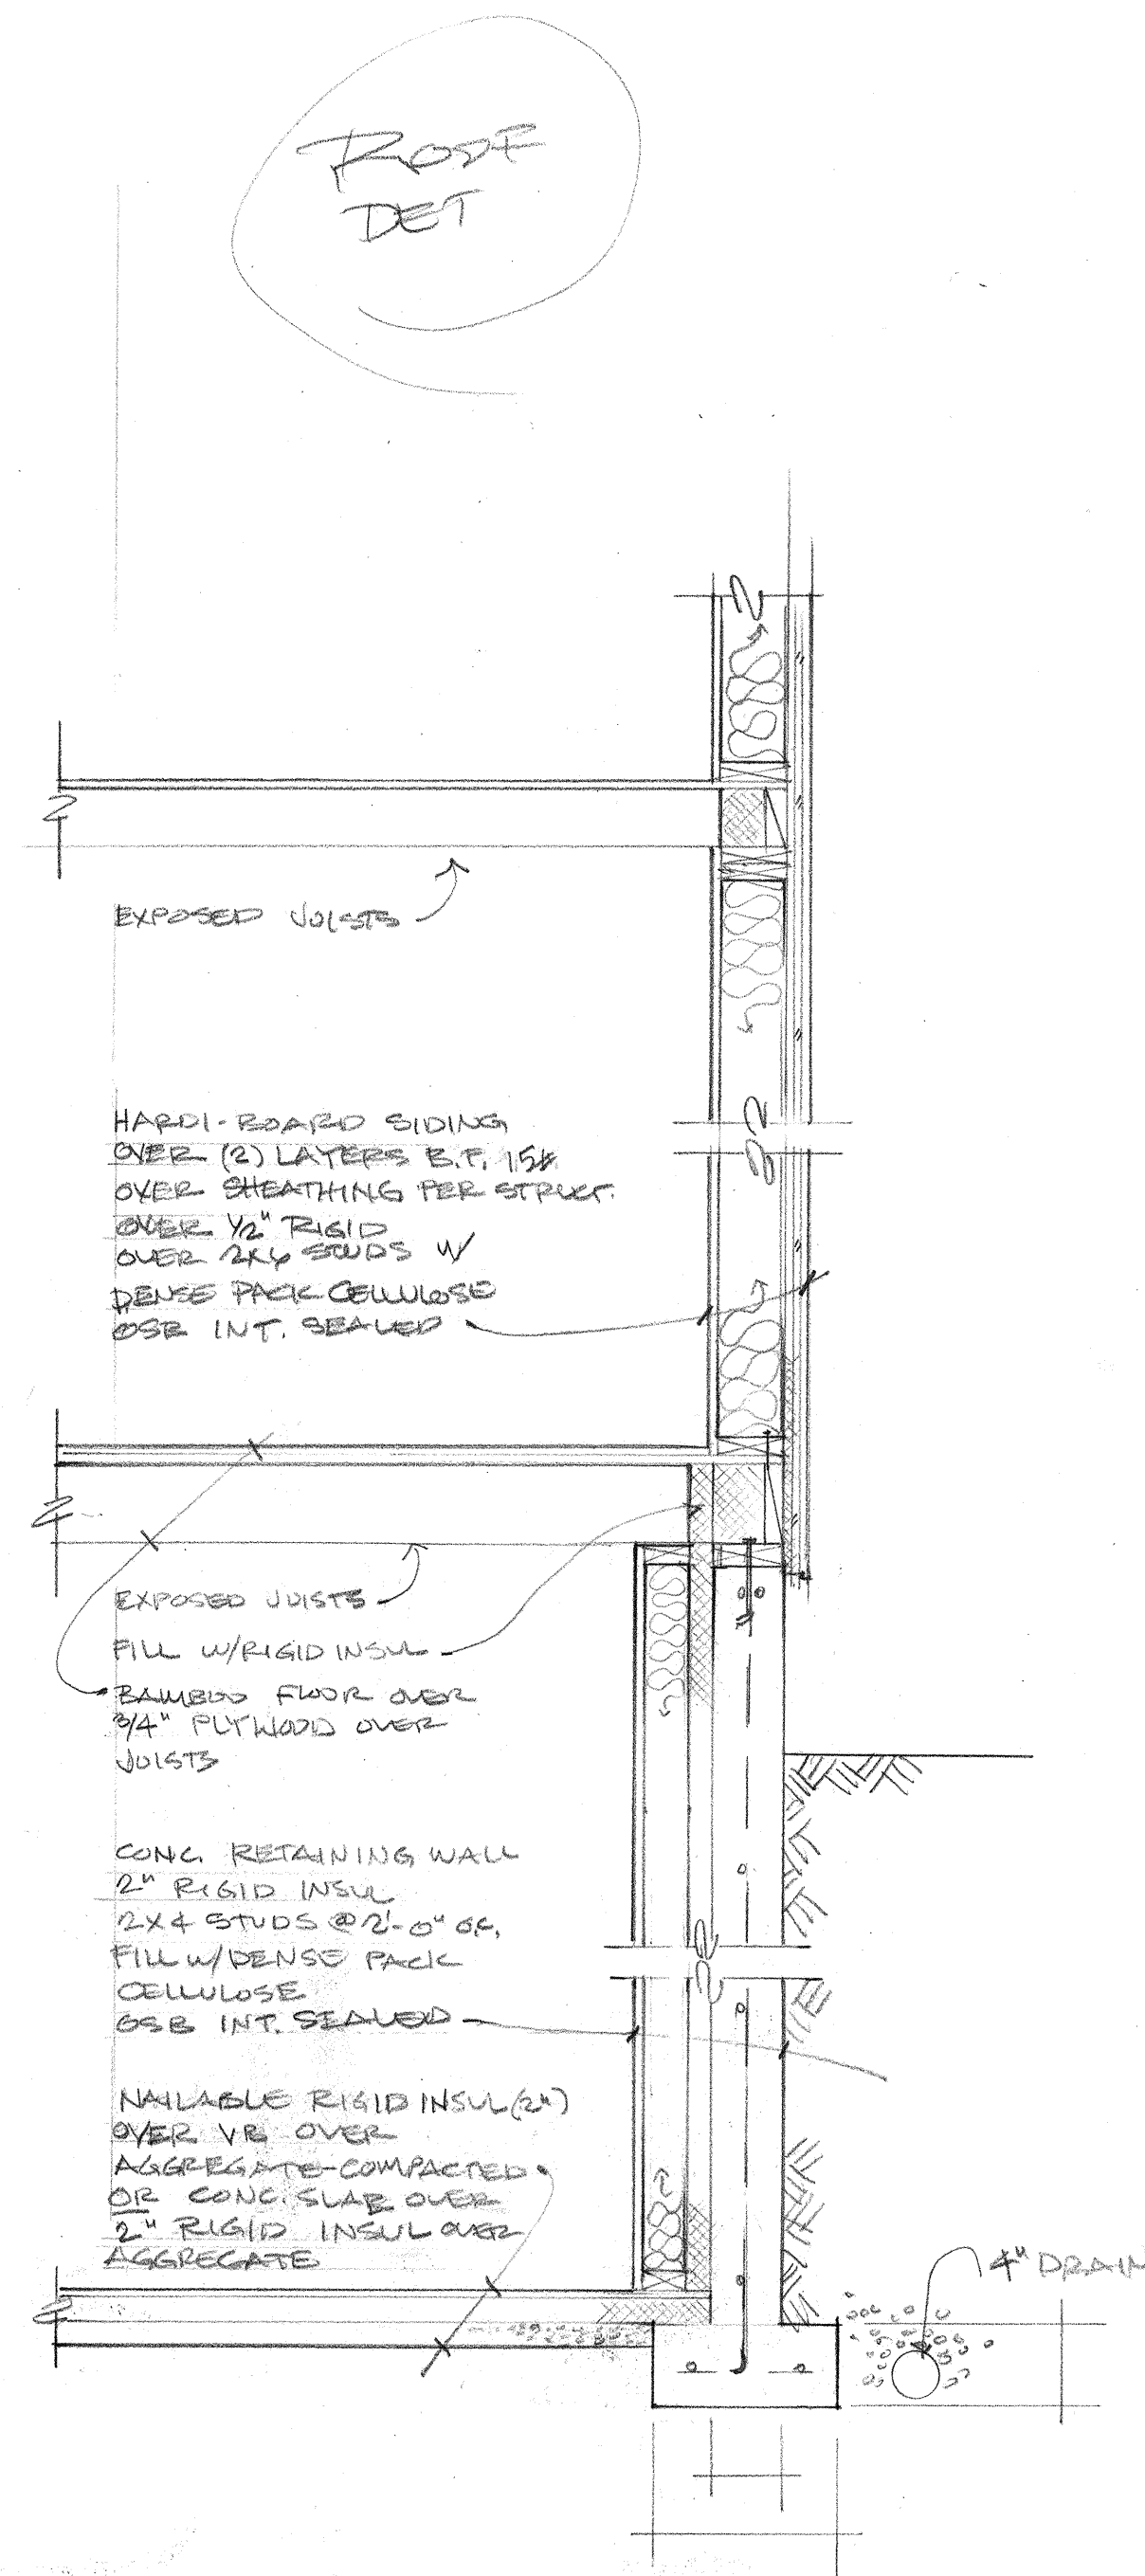 ROOF
DET
EXPOSED JOISTS
HARDI-BOARD SIDING
OVER (2) LAYERS B.P. 15#
OVER SHEATHING PER STRUCT.
OVER 1/2" RIGID
OVER 2X6 STUDS W/
DENSE PACK CELLULOSE
OSB INT. SEALED
EXPOSED JOISTS
FILL W/RIGID INSUL
BAMBOO FLOOR OVER
3/4" PLYWOOD OVER
JOISTS
CONC. RETAINING WALL
2" RIGID INSUL
2X4 STUDS @ 2'-0" O.C.
FILL W/DENSE PACK
CELLULOSE
OSB INT. SEALED
NAILABLE RIGID INSUL (2")
OVER VB OVER
AGGREGATE-COMPACTED
OR CONC. SLAB OVER
2" RIGID INSUL OVER
AGGREGATE
4" DRAIN